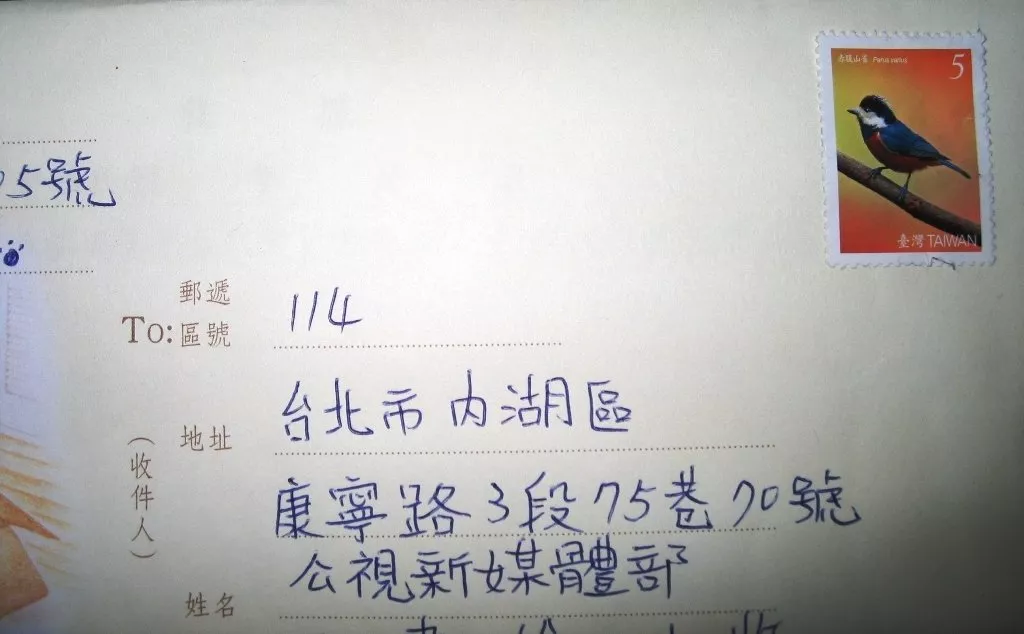 赤腹山雀 Parus varius 5
臺灣 TAIWAN
5號
郵遞
To: 區號 114
地址 台北市內湖區
(收件人)
康寧路3段75巷70號
公視新媒體部
姓名
收